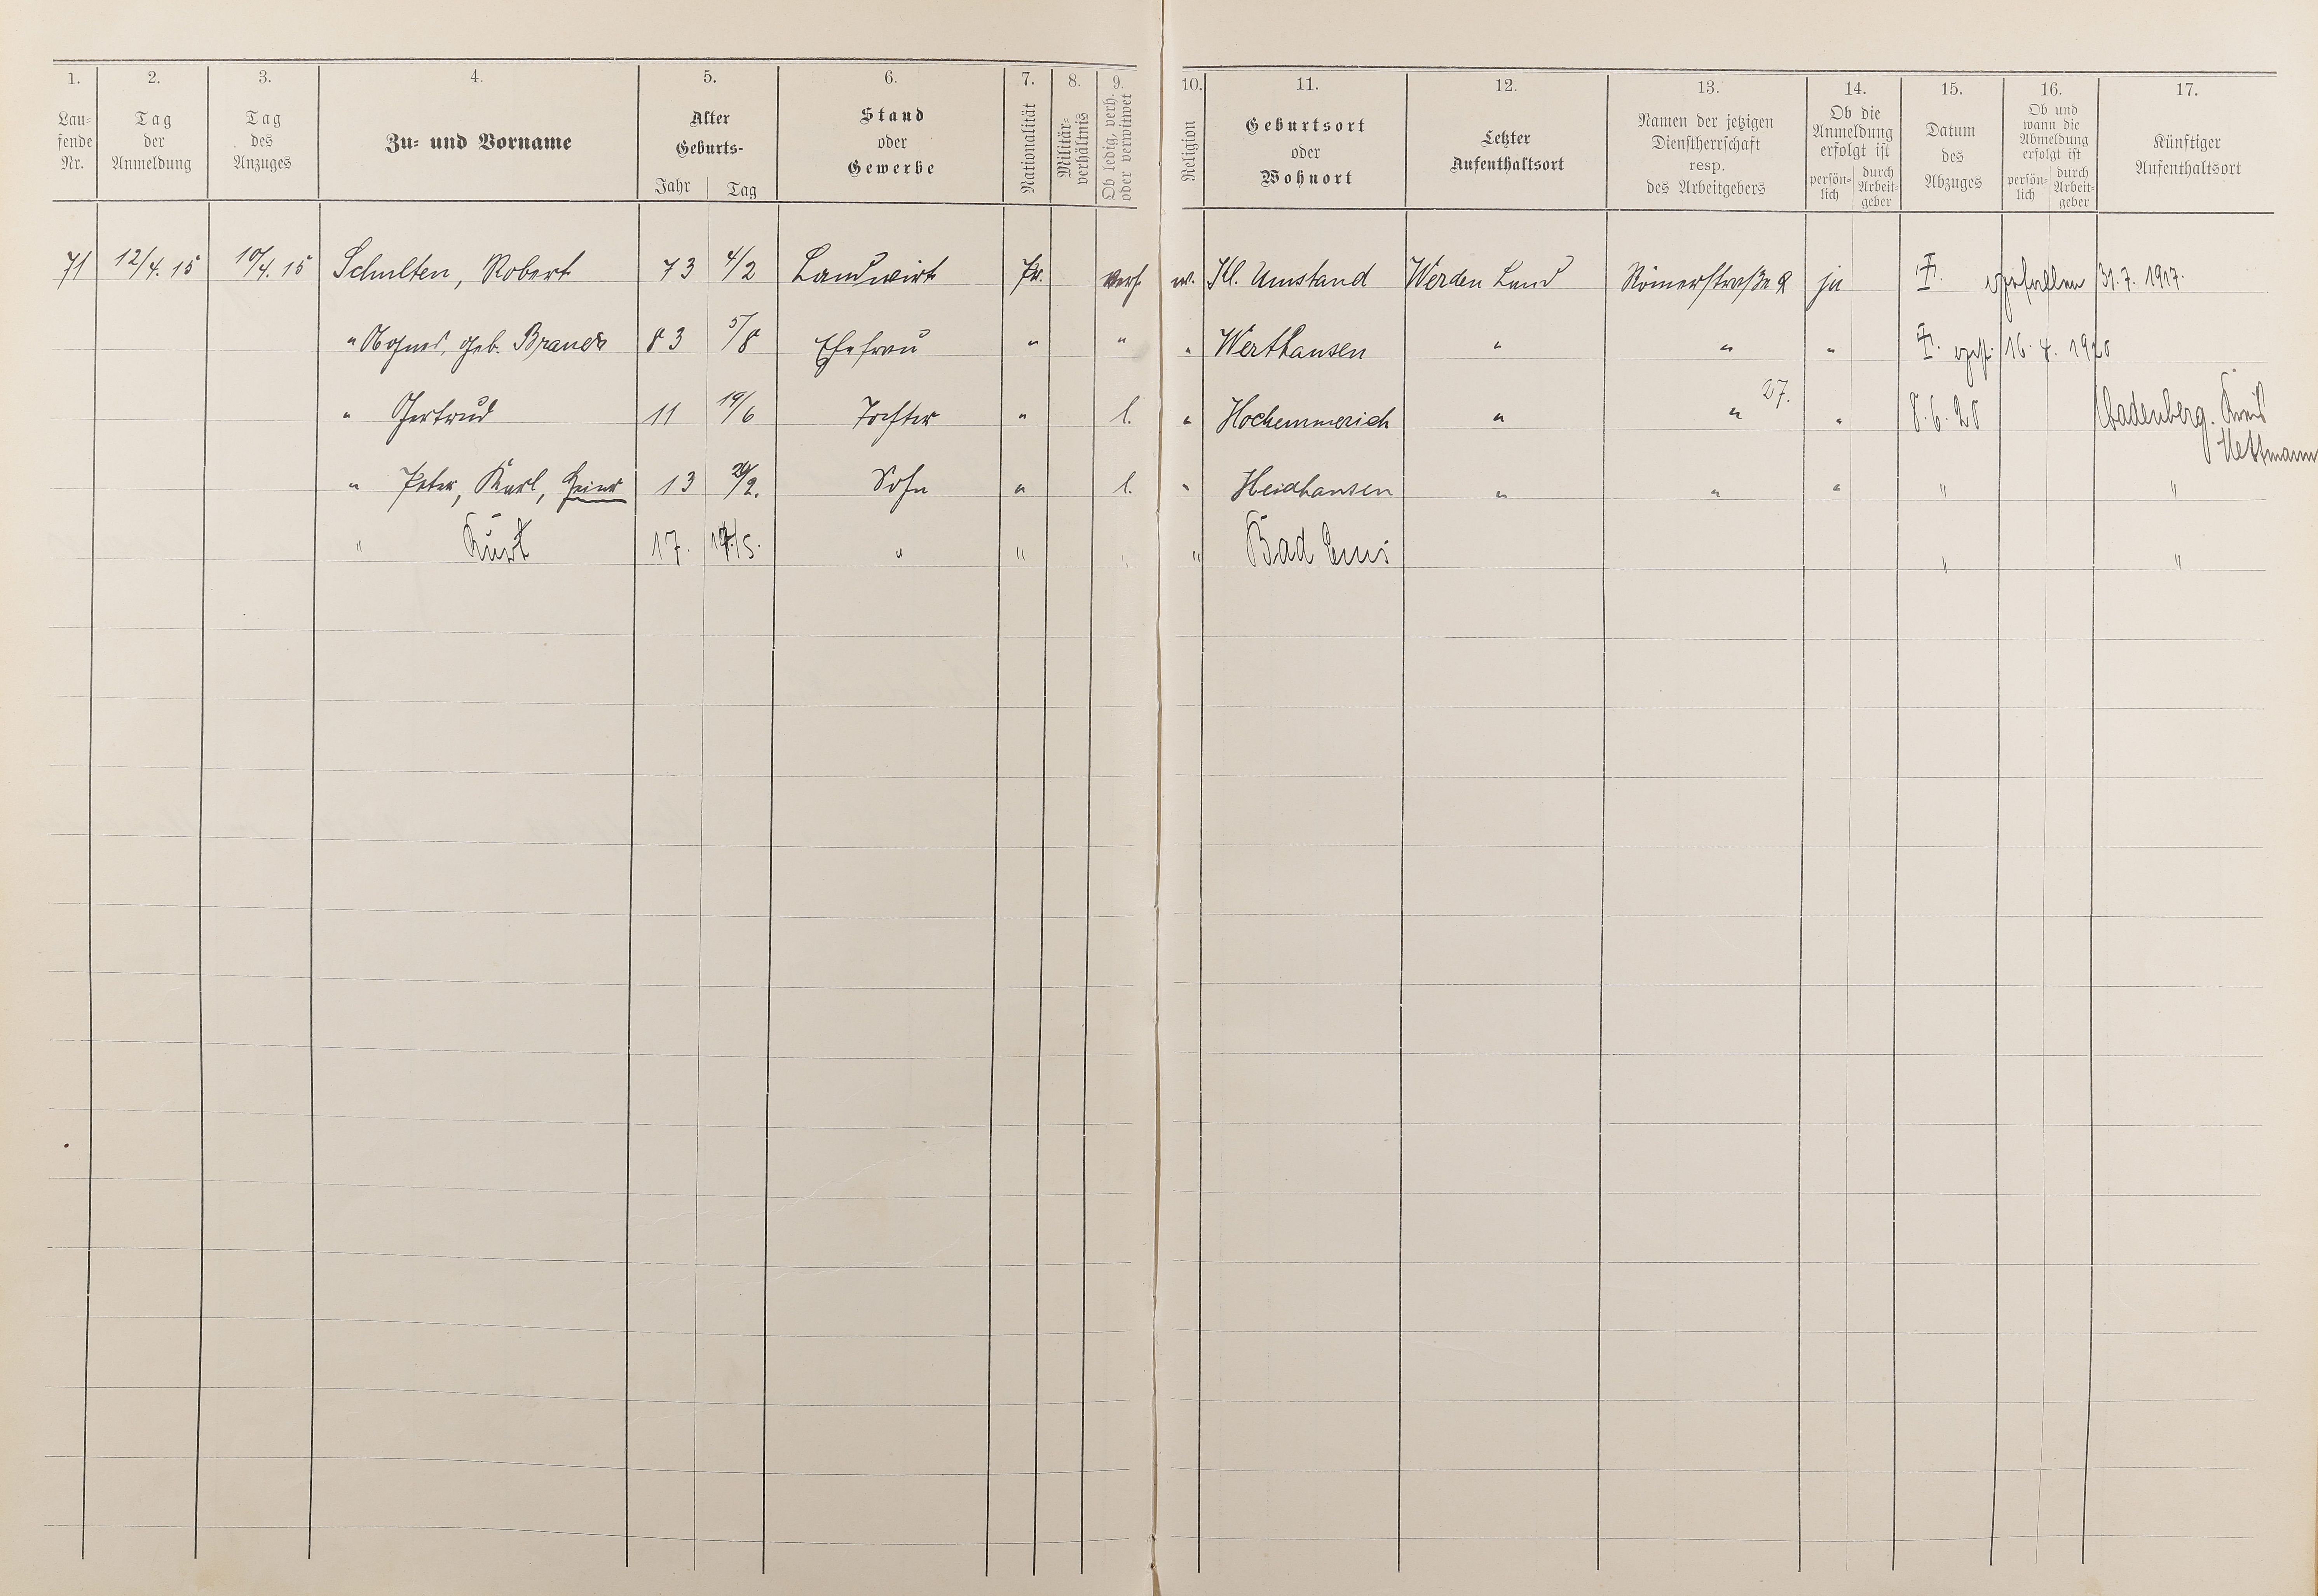 1. 2. 3. 4. 5. 6. 7. 8. 9. 10. 11. 12. 13. 14. 15. 16. 17.
Lau-
fende
Nr.
Tag
der
Anmeldung
Tag
des
Anzuges
Zu- und Vorname
Alter
Geburts-
Jahr Tag
Stand
oder
Gewerbe
Nationalität
Militär-
verhältnis
Ob ledig, verh.
oder verwitwet
Religion
Geburtsort
oder
Wohnort
Letzter
Aufenthaltsort
Namen der jetzigen
Dienstherrschaft
resp.
des Arbeitgebers
Ob die
Anmeldung
erfolgt ist
persön-
lich
durch
Arbeit-
geber
Datum
des
Abzuges
Ob und
wann die
Abmeldung
erfolgt ist
persön-
lich
durch
Arbeit-
geber
Künftiger
Aufenthaltsort
71 12/4. 15 10/4. 15 Schulten, Robert 73 4/2 Landwirt Pr. verh. Kl. Umstand Werden Land Römerstraße ja gefallen 31.7.1917.
" Agnes, geb. 83 5/8 Ehefrau " " " Werthausen " " " gest. 16. 4. 1920
" Gertrud 11 19/6 Tochter " l. " Hochemmerich " " 27. " 8.6.20 Kreis
Mettmann
" Peter, Karl, Heinr 13 /2. Sohn " l. " Heidhausen " " " " "
" Kurt 17. /5. " " " " Bad Ems " "